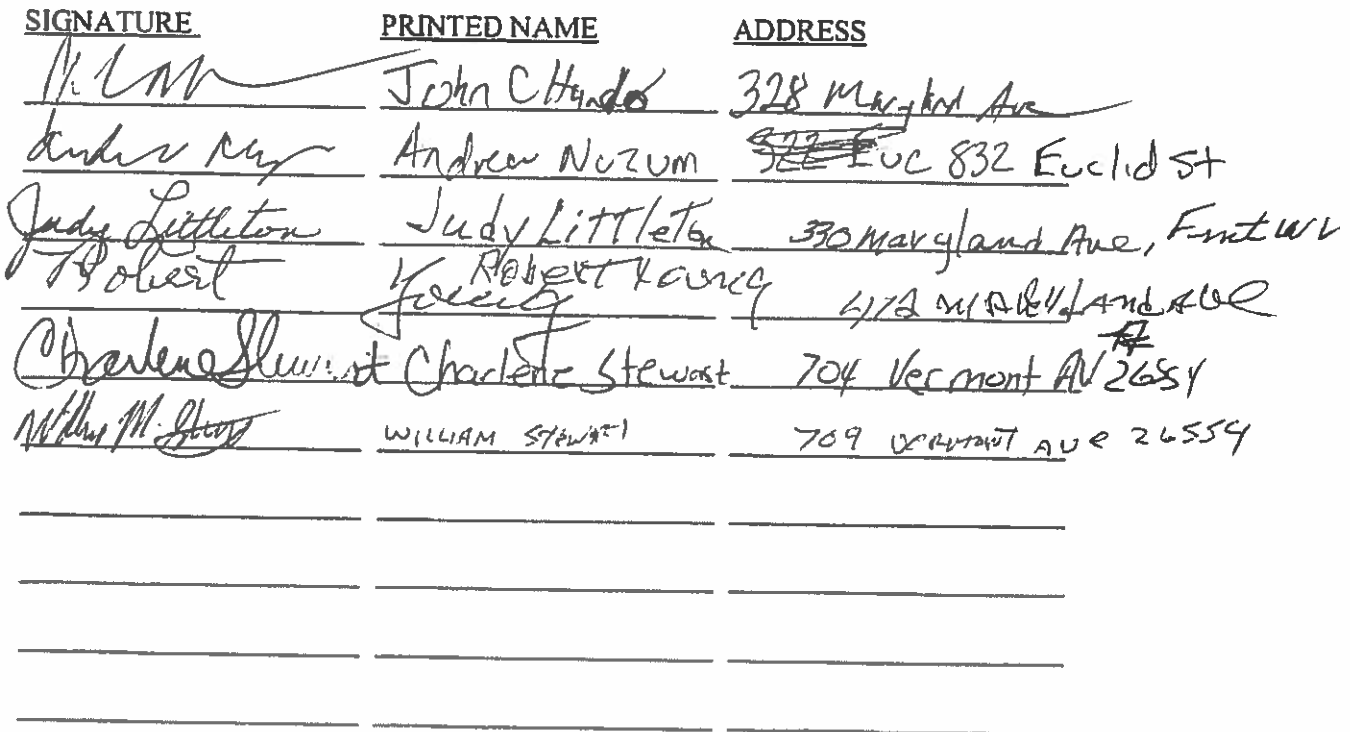 SIGNATURE PRINTED NAME ADDRESS
John C 328 Maryland Ave
Andrew Nuzum Euc 832 Euclid St
Judy Littleton Judy Littleton 330 Maryland Ave, WV
Robert Young Robert Young 412 Maryland Ave
Charlene Stewart Charlene Stewart 704 Vermont AV 26554
William M. WILLIAM STEWART 709 VERMONT AVE 26554